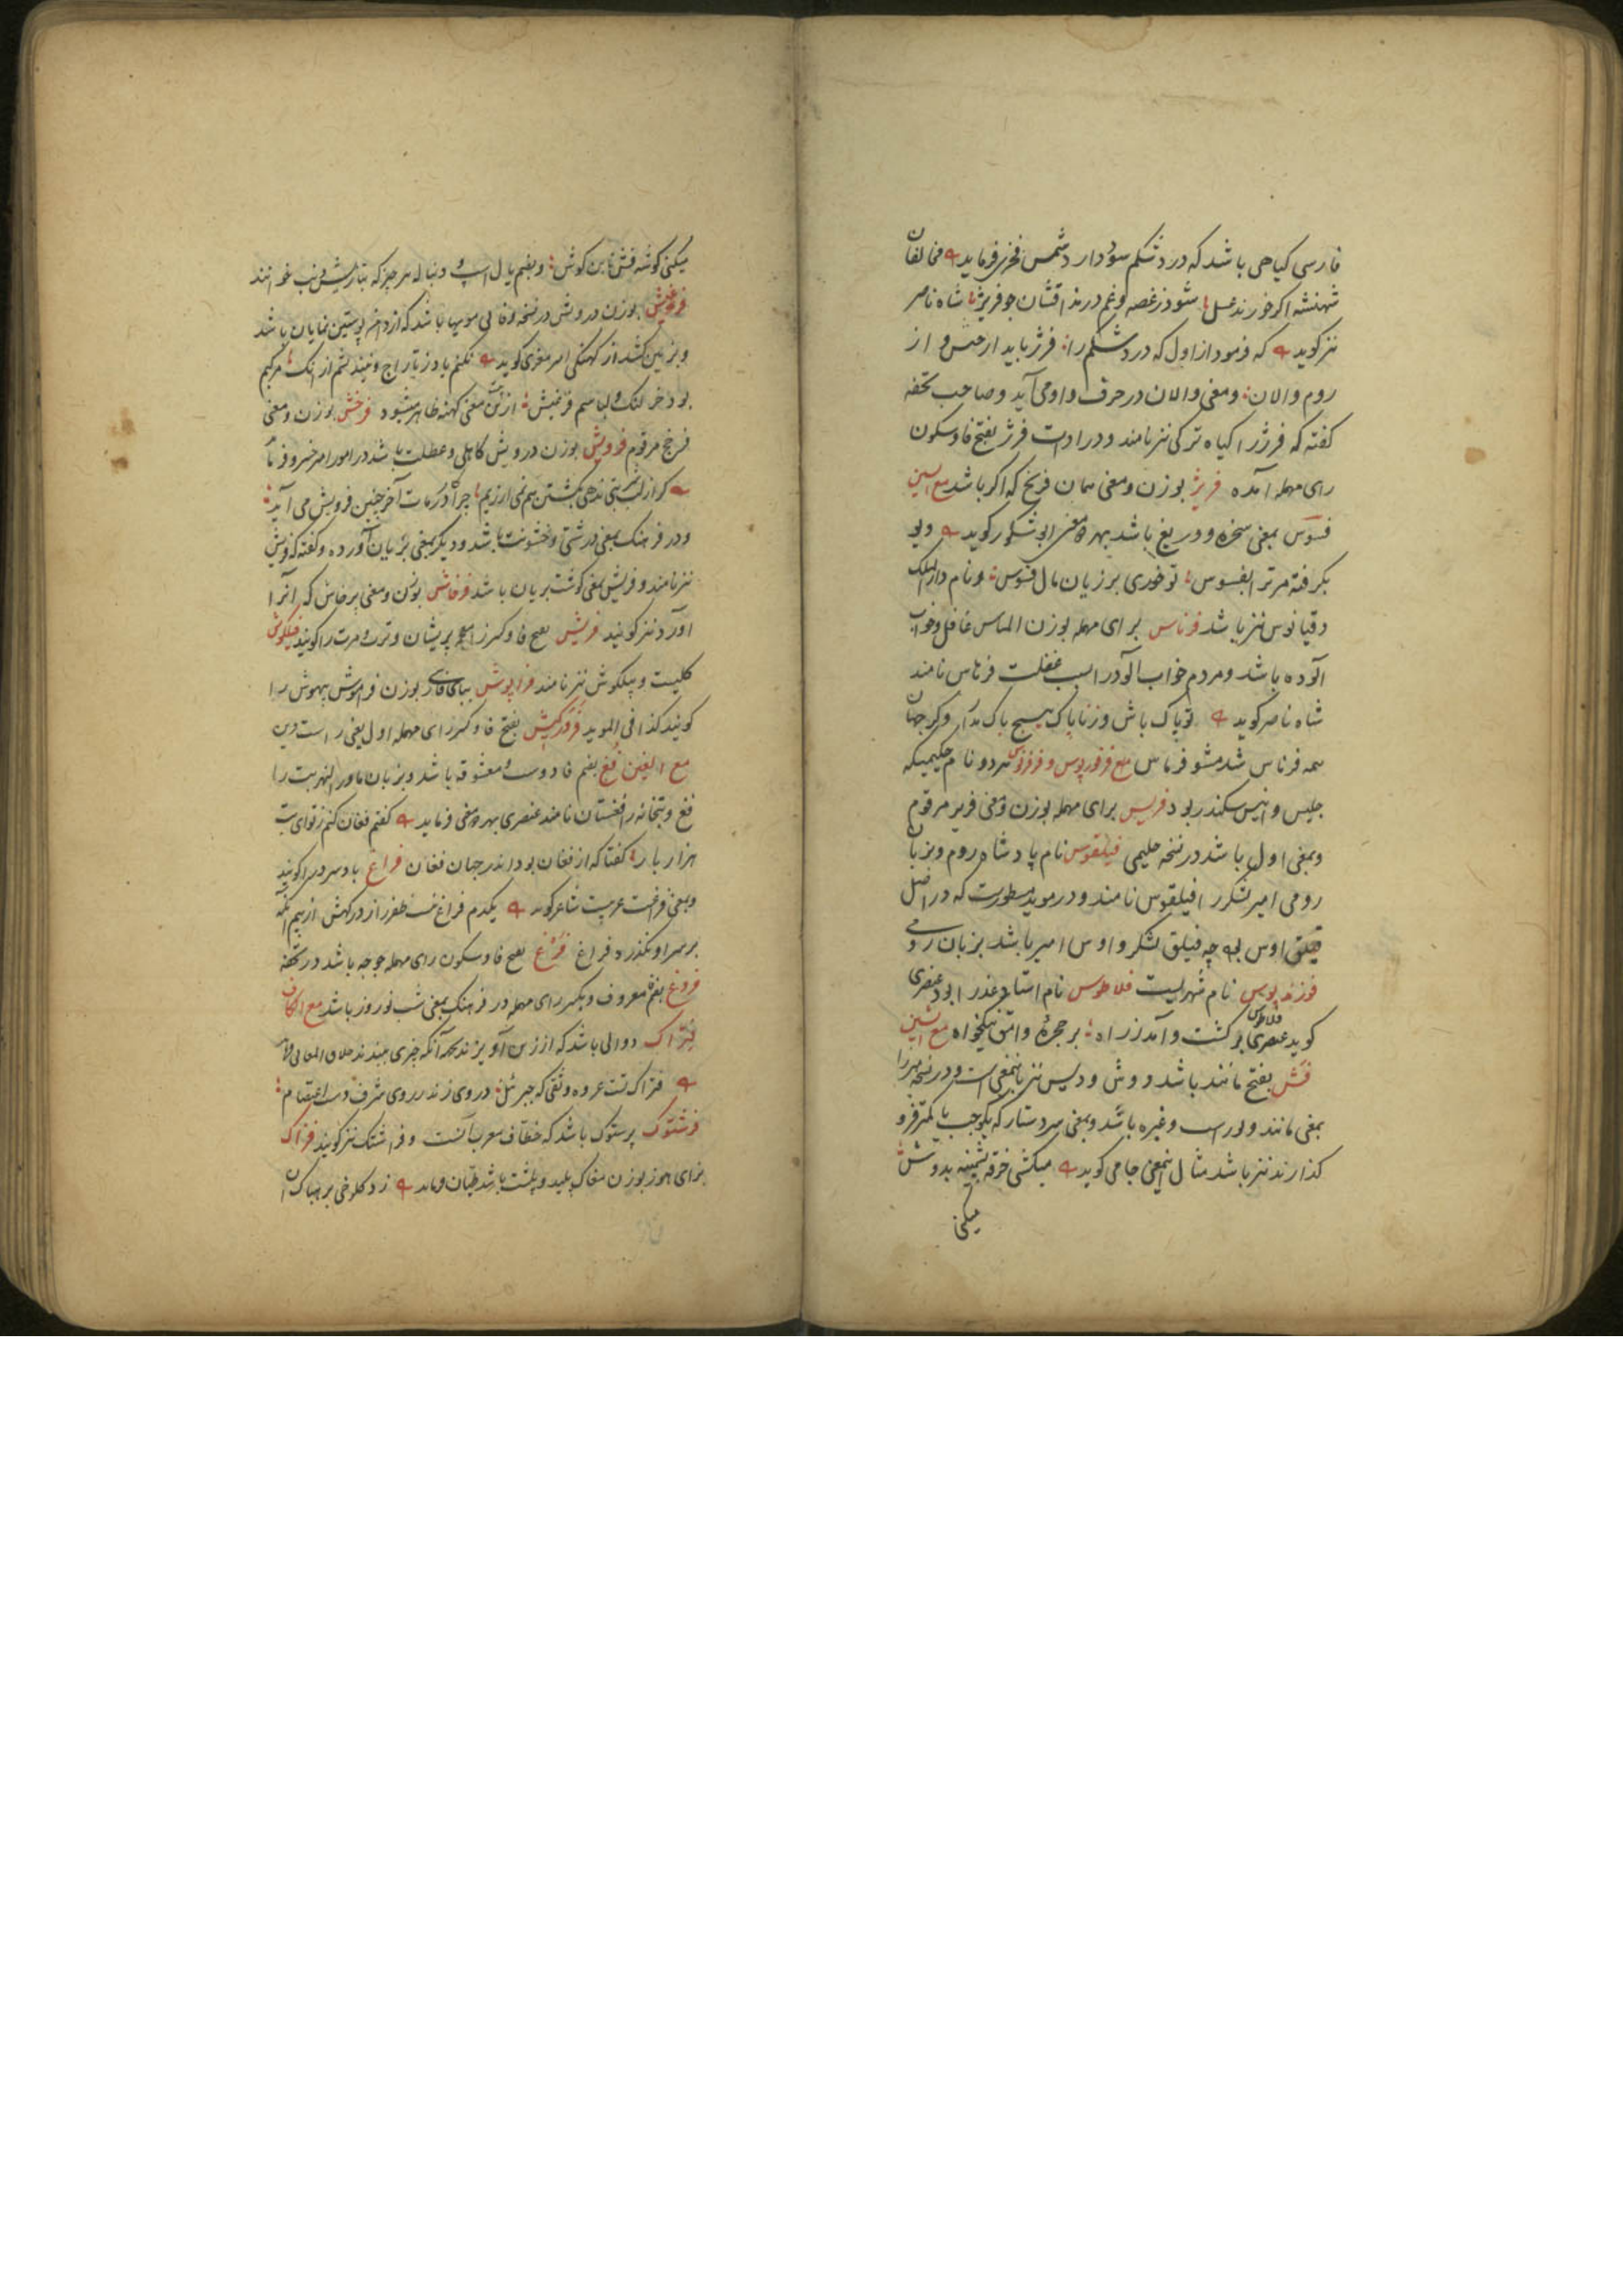 فارسی کیاهی باشد که درد شکم سود دارد شمس فخری فرماید مخالفان
شهنشه اکر خورند عسل شود ز غصه و غم در مذاقشان جو فریژ شاه ناصر
نیز کوید که فرمود از اول که درد شکم را فرژ باید از و از
روم والان و معنی والان در حرف واو می آید و صاحب تحفه
کفته که فرژ را کیاه ترکی نیز نامند و در ادات فرژ بفتح فا و سکون
رای مهمله آمده فریژ بوزن و معنی همان فریج که اکر باشد مع السین
فسوس بمعنی سخره و دریغ باشد بهر دو معنی ابو شکور کوید
بکرفته مر ترا بفسوس تو خوری بر زیان مال فسوس و نام دار الملک
دقیانوس نیز باشد فرناس برای مهمله بوزن الماس غافل و خواب
آلوده باشد و مردم خواب آلود را بسبب غفلت فرناس نامند
شاه ناصر کوید تو پاک باش و ز ناپاک هیچ باک مدار وکر جهان
همه فرناس شد مشو فرناس فرفوریوس و هر دو نام حکیمیکه
جلیس و انیس سکندر بود فریس برای مهمله بوزن و معنی فریر مرقوم
و بمعنی اول باشد در نسخه حلیمی فیلقوس نام پادشاه روم و بزبان
رومی امیر لشکر را فیلقوس نامند و در موید مسطورست که در اصل
فیلق اوس بوده چه فیلق لشکر و اوس امیر باشد بزبان رومی
نام شهریست فلاطوس نام استاد عذرا بود عنصری
کوید فلاطوس بر کشت و آمد ز راه بر حجرهٔ وامق نیکخواه مع الشین
فش بفتح مانند باشد و وش و دیس نیز باینمعنی است و در نسخه میرزا
بمعنی مانند و غیره باشد و بمعنی سر دستار که یکوجب یا کمتر فرو
کذارند نیز باشد مثال اینمعنی جامی کوید میکشی خرقه پشمینه بدوش
میکنی
میکنی کوشه فش تا بن کوش و بضم یال اسپ و دنباله هر چیز که بتازیش ذنب خوانند
فرغیش بوزن درویش در نسخه وفایی مویها باشد که از دامن پوستین نمایان باشد
و بر زمین کشد از کهنکی امیر معزی کوید
بود خر لنک و لباسم فرغیش ازین بیت معنی کهنه ظاهر میشود فرخش بوزن و معنی
فرخج مرقوم فرویش بوزن درویش کاهلی و عطلت باشد در امور امیر خسرو فرماید
کر از لب شربتی ندهی بکشتن هم نمی ارزیم چرا در کار ما آخر چنین فرویش می آید
و در فرهنک بمعنی درشتی و خشونت باشد و دیکر بمعنی بریان آورده و کفته که فریش
نیز نامند و فریش بمعنی کوشت بریان باشد فرخاش بوزن و معنی پرخاش که آنرا
آورد نیز کویند فریش بفتح فا و کسر را پریشان و ترت و مرت را کویند فیلکوش
کلیست و پیلکوش نیز نامند فراپوش ببای فارسی بوزن فراموش بیهوش را
کویند کذا فی الموید بفتح فا و کسر رای مهمله اول یعنی راست دین
مع الغین فغ بضم فا دوست و معشوقه باشد و بزبان ماورالنهر بت را
فغ و بتخانه را فغستان نامند عنصری بهر دو معنی فرماید کفتم فغان کنم ز تو ای بت
هزار بار کفتا که از فغان بود اندر جهان فغان فراغ باد سرد را کویند
و بمعنی فراغت عربیست شاعر کوید یکدم فراغ نیست ظفر را ز درکهش از بیم آنکه
بر سر او نکذرد فراغ فرغ بفتح فا و سکون رای مهمله جوجه باشد در تحفه
فروغ بضم فا معروف و بکسر رای مهمله در فرهنک بمعنی شب نوروز باشد مع الکاف
فتراک دوالی باشد که از زین آویزند بجهت آنکه چیزی ببندند خلاق المعانی فرماید
فتراک تست عروه وثقی که جبرئیل در وی زند ز روی شرف دست اعتصام
فرشتوک پرستوک باشد که خطاف معرب آنست و فراشتک نیز کویند فژاک
بزای هوز بوزن مغاک پلید و پلشت باشد طیان فرماید زد کلوخی بر هباک آن